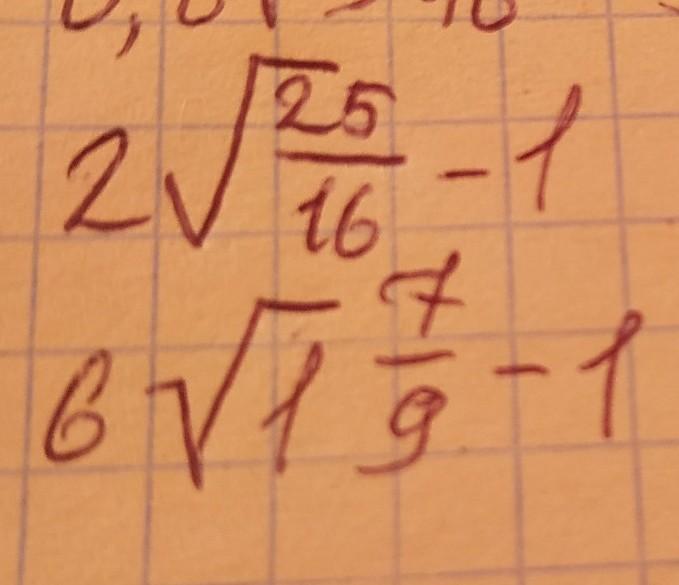 2√25/16 - 1
6√1 7/9 - 1